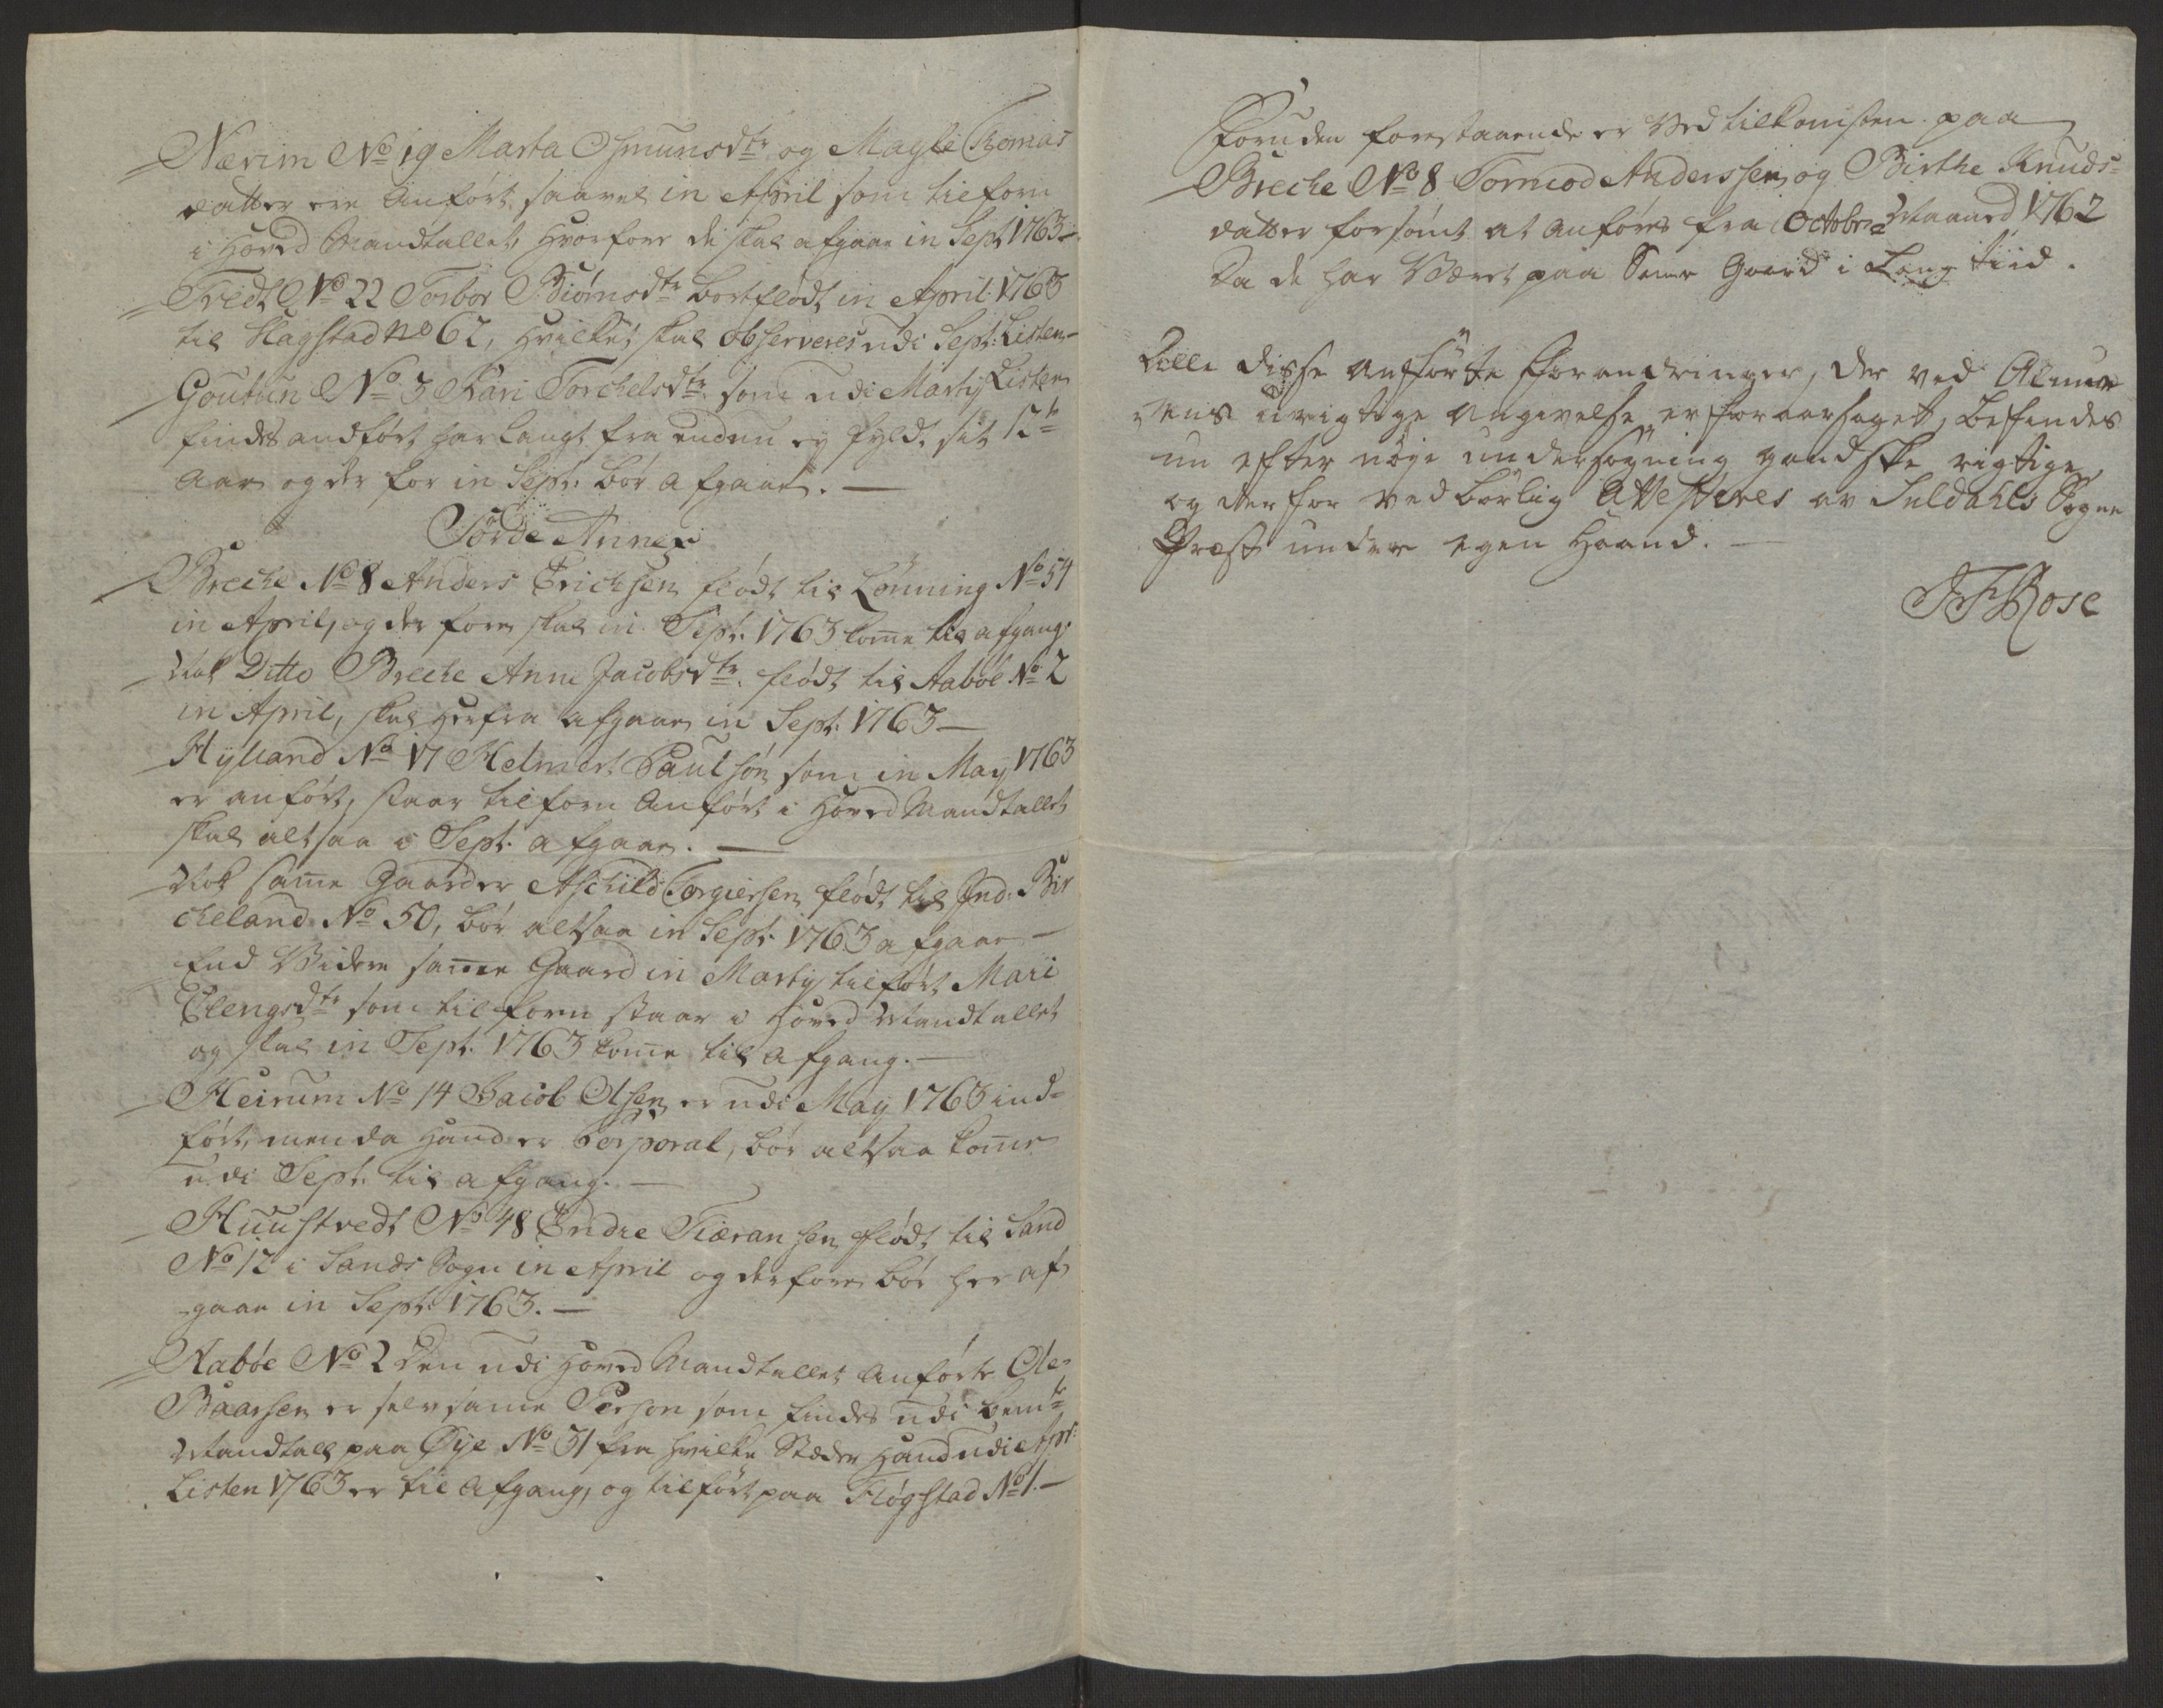 Nærim No 19 Marta Osmunsdtr og Magle Thomas
datter ere Anført, saavel in April som tilforn
i Hoved Mandtallet, hvorfore de skal afgaae in Sept 1763 -
Tvedt No 22 Torbor Biórnsdtr bortflødt in April 1763
til Hagstad no 62, hvilket skal observeres udi Sept: Listen -
Goutun No 3 Kari Torchelsdtr som udi Martij Listen
findes andført, har langt fra endnu ey fyldt sit 12te
Aar og der for in Sept: bør afgaae. -
Sørde Annex
Breche No 8 Anders Erichsen flødt til Lønning No 54
in April, og der fore skal in Sept: 1763 kome til afgang.
Nok Ditto Breche Anne Jacobsdtr. flødt til Aabøe No 2
in April, skal herfra afgaae in Sept: 1763 -
Hylland No 17 Helmert Paulsøn som in May 1763
er anført, staar tilforn Anført i Hoved Mandtallet
skal altsaa i Sept: afgaae. -
Nok same Gaard er Aschild Torgiersen flødt til Ind: Bir
cheland No 50, bør altsaa in Sept: 1763 afgaae -
End Videre same Gaard in Martij tilført Mari
Elengsdtr som tilforn staar i Hoved Mandtallet
og skal in Sept. 1763 kome til afgang. -
Heirum No 14 Jacob Olsen er udi May 1763 ind-
ført, men da Hand er Corporal, bør altsaa kome
udi Sept. til afgang. -
Huustvedt No 48 Endre Tiæransen flødt til Sand
No 12 i Sands Sogn in April og derfore bør her af
gaae in Sept: 1763. -
Aabøe No 2 Den udi Hoved Mandtallet Anførte Ole
Baarsen er selv same Person som findes udi bemte
Mandtall paa Øye No 31 fra hvilke Stæder Hand udi Apr:
Listen 1763 er til Afgang, og tilført paa Fløgstad No 1. -
Foruden forestaaende er Ved tilkomsten paa
Breche No 8 Tormod Anderssen og Birthe Knuds-
datter forsømt at Anføres fra Octobr: Maaned 1762
Da de har Været paa Same Gaard i Lang tiid.
Alle disse Anførte Forandringer, der ved Almu-
ens urigtige Angivelse er foraarsaget, befindes
nu efter nøye undersøgning gandske rigtige,
og derfor ved børlig Attesteres av Suldahls Sogne
Præst under egen Haand. -
JFBose